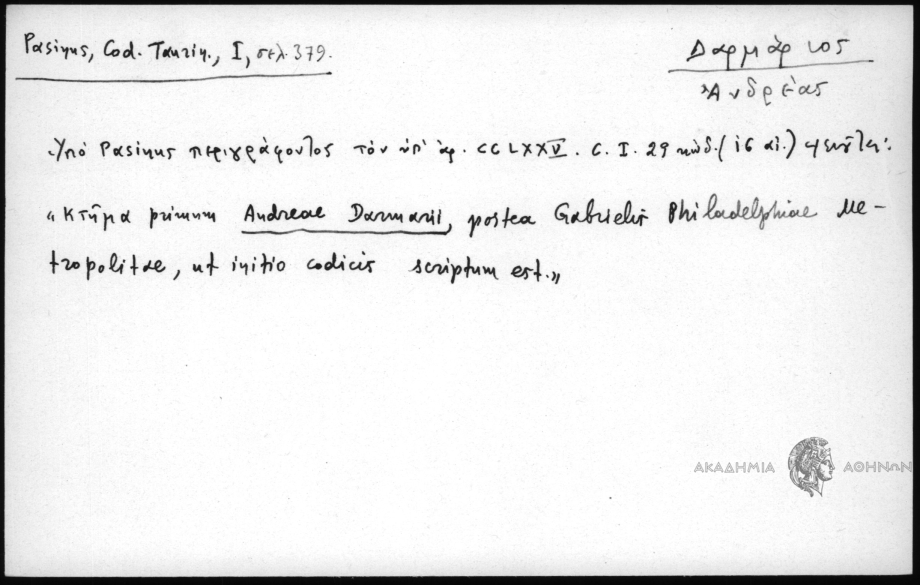 Pasinus, Cod. Taurin., I, σελ. 379.
Δαρμάριος
Ἀνδρέας
Ὑπὸ Pasinus περιγράφοντος τὸν ὑπ' ἀρ. CCLXXV. C. I. 29 κώδ. (ις αἰ.)
«Κτῆμα primum Andreae Darmarii, postea Gabrielis Philadelphiae Me-
tropolitae, ut initio codicis scriptum est.»
ΑΚΑΔΗΜΙΑ ΑΘΗΝΩΝ